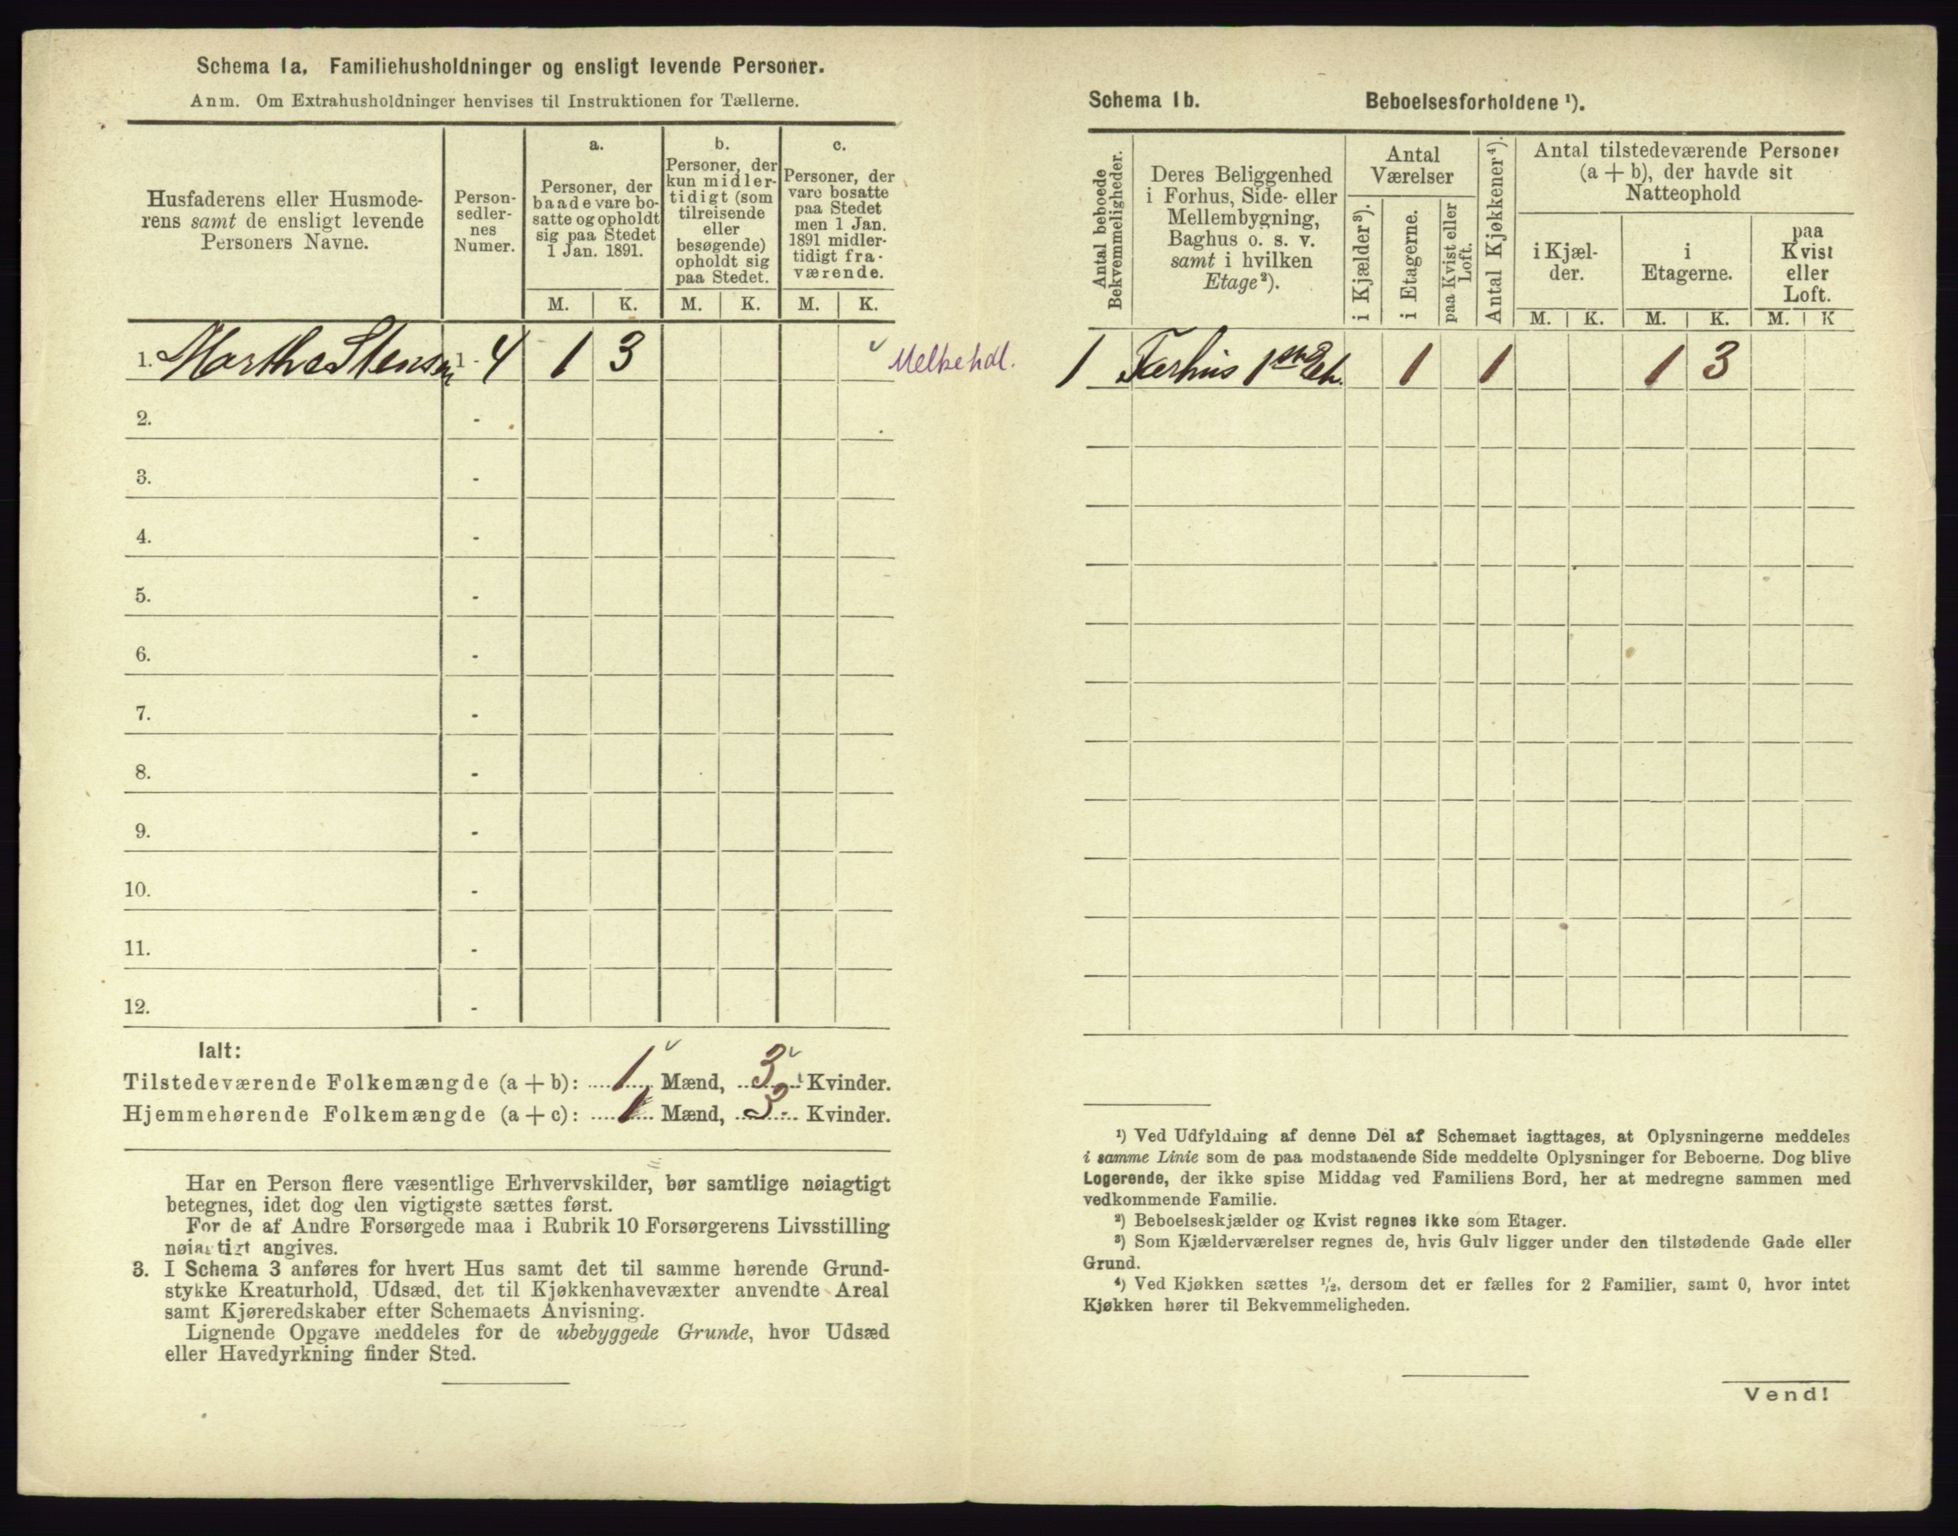 Schema 1a. Familiehusholdninger og ensligt levende Personer.
Anm. Om Extrahusholdninger henvises til Instruktionen for Tællerne.
Husfaderens eller Husmode-
rens samt de ensligt levende
Personers Navne.
Person-
sedler-
nes
Numer.
a.
Personer, der
baade vare bo-
satte og opholdt
sig paa Stedet
1 Jan. 1891.
b.
Personer, der
kun midler-
tidigt (som
tilreisende
eller
besøgende)
opholdt sig
paa Stedet.
c.
Personer, der
vare bosatte
paa Stedet
men 1 Jan.
1891 midler-
tidigt fra-
værende.
M. K. M. K. M. K.
1. Marthe Stensen 1 - 4 1 3 Melkehdl.
2. -
3. -
4. -
5. -
6. -
7. -
8. -
9. -
10. -
11. -
12. -
Ialt:
Tilstedeværende Folkemængde (a + b): 1 Mænd, 3 Kvinder.
Hjemmehørende Folkemængde (a + c): 1 Mænd, 3 Kvinder.
Har en Person flere væsentlige Erhvervskilder, bør samtlige nøiagtigt
betegnes, idet dog den vigtigste sættes først.
For de af Andre Forsørgede maa i Rubrik 10 Forsørgerens Livsstilling
nøiagtigt angives.
3. I Schema 3 anføres for hvert Hus samt det til samme hørende Grund-
stykke Kreaturhold, Udsæd, det til Kjøkkenhavevæxter anvendte Areal
samt Kjøreredskaber efter Schemaets Anvisning.
Lignende Opgave meddeles for de ubebyggede Grunde, hvor Udsæd
eller Havedyrkning finder Sted.
Schema 1b. Beboelsesforholdene ¹).
Antal beboede
Bekvemmeligheder.
Deres Beliggenhed
i Forhus, Side- eller
Mellembygning,
Baghus o. s. v.
samt i hvilken
Etage²).
Antal
Værelser
i Kjælder³).
i Etagerne.
paa Kvist eller
Loft.
Antal Kjøkkener⁴).
Antal tilstedeværende Personer
(a + b), der havde sit
Natteophold
i Kjæl-
der.
i
Etagerne.
paa
Kvist
eller
Loft.
M. K. M. K. M. K
1 Forhus 1ste Et. 1 1 1 3
¹) Ved Udfyldning af denne Del af Schemaet iagttages, at Oplysningerne meddeles
i samme Linie som de paa modstaaende Side meddelte Oplysninger for Beboerne. Dog blive
Logerende, der ikke spise Middag ved Familiens Bord, her at medregne sammen med
vedkommende Familie.
²) Beboelseskjælder og Kvist regnes ikke som Etager.
³) Som Kjælderværelser regnes de, hvis Gulv ligger under den tilstødende Gade eller
Grund.
⁴) Ved Kjøkken sættes ¹/₂, dersom det er fælles for 2 Familier, samt 0, hvor intet
Kjøkken hører til Bekvemmeligheden.
Vend!